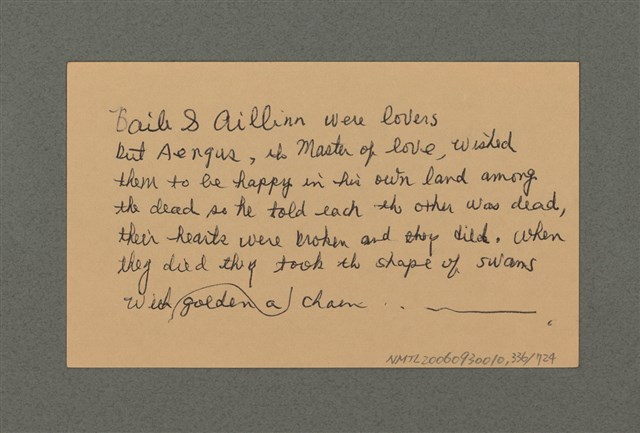 Baile & Aillinn were lovers
but Aengus, the Master of love, wished
them to be happy in his own land among
the dead so he told each the other was dead,
their hearts were broken and they died. When
they died they took the shape of swans
with golden a chain . . ______
NMTL20060930010,336/724